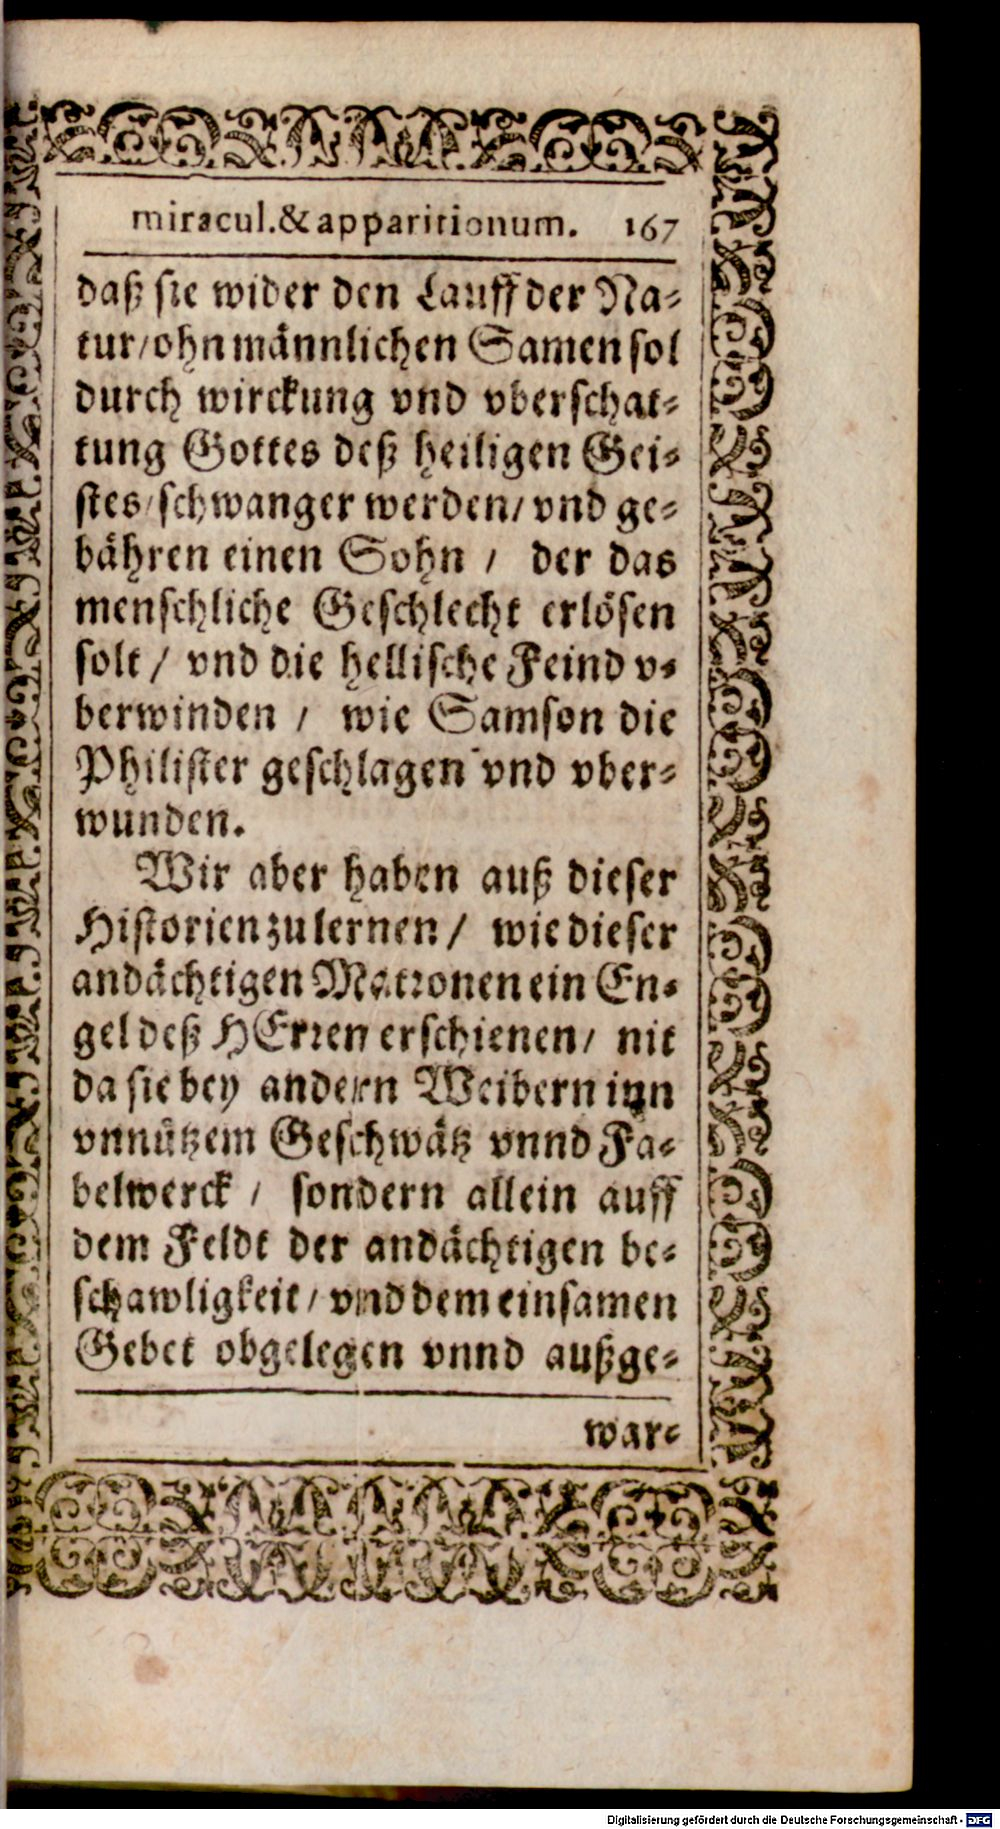 miracul.& apparitionum. 167
daß sie wider den Lauff der Na-
tur/ohn männlichen Samen sol
durch wirckung vnd vberschat-
tung Gottes deß heiligen Gei-
stes/schwanger werden/vnd ge-
bähren einen Sohn / der das
menschliche Geschlecht erlösen
solt / vnd die hellische Feind v-
berwinden / wie Samson die
Philister geschlagen vnd vber-
wunden.
Wir aber haben auß dieser
Historien zu lernen / wie dieser
andächtigen Matronen ein En-
gel deß HErren erschienen / nit
da sie bey andern Weibern inn
vnnützem Geschwätz vnnd Fa-
belwerck / sondern allein auff
dem Feldt der andächtigen be-
schawligkeit / vnd dem einsamen
Gebet obgelegen vnnd außge-
war-
Digitalisierung gefördert durch die Deutsche Forschungsgemeinschaft - DFG